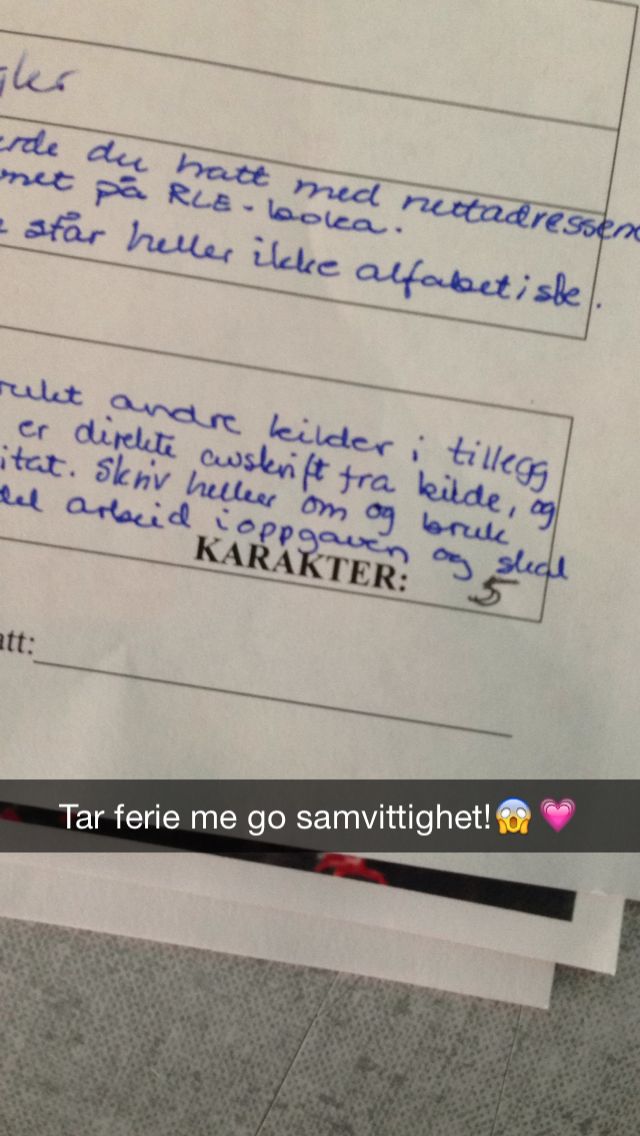 du hatt med nettadressen
på RLE-boka.
står heller ikke alfabetiske.
andre kilder i tillegg
er direkte avskrift fra kilde, og
Skriv heller om og bruk
arbeid i oppgaven og skal
KARAKTER: 5
Tar ferie me go samvittighet!😱💗